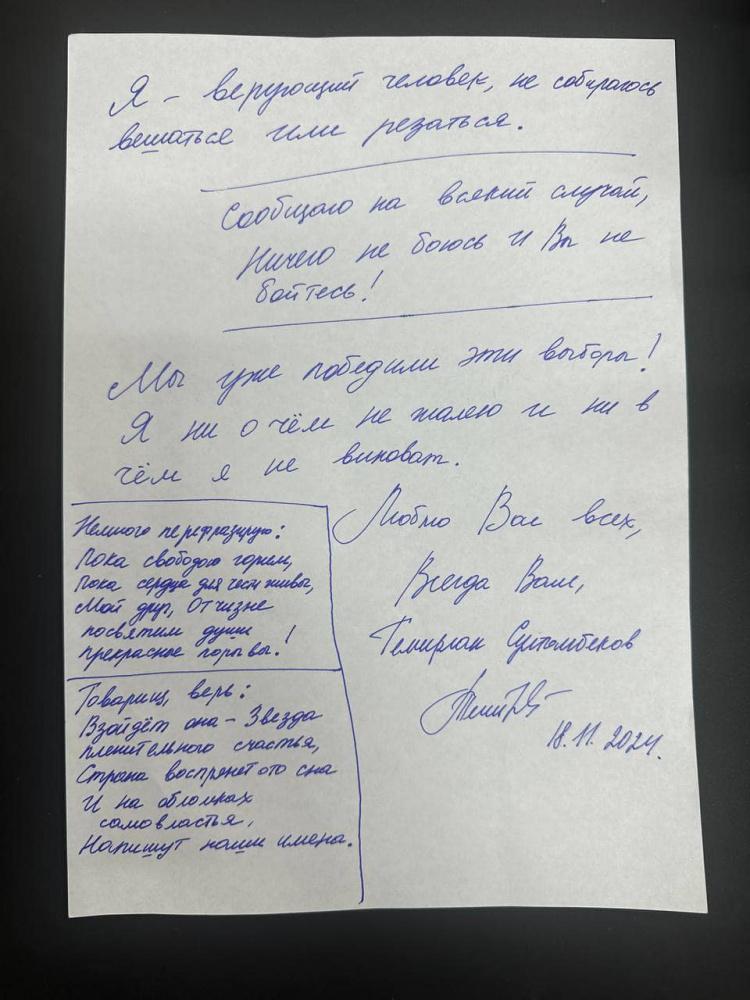 Я – верующий человек, не собираюсь
вешаться или резаться.
Сообщаю на всякий случай,
Ничего не боюсь и Вы не
бойтесь!
Мы уже победили эти выборы!
Я ни о чём не жалею и ни в
чём я не виноват.
Люблю Вас всех,
Всегда Ваш,
Темирлан Султанбеков
18.11.2024.
Немного перефразирую:
Пока свободою горим,
Пока сердца для чести живы,
Мой друг, Отчизне
посвятим души
прекрасные порывы!
Товарищ, верь:
Взойдёт она – Звезда
пленительного счастья,
Страна воспрянет ото сна
И на обломках
самовластья,
Напишут наши имена.